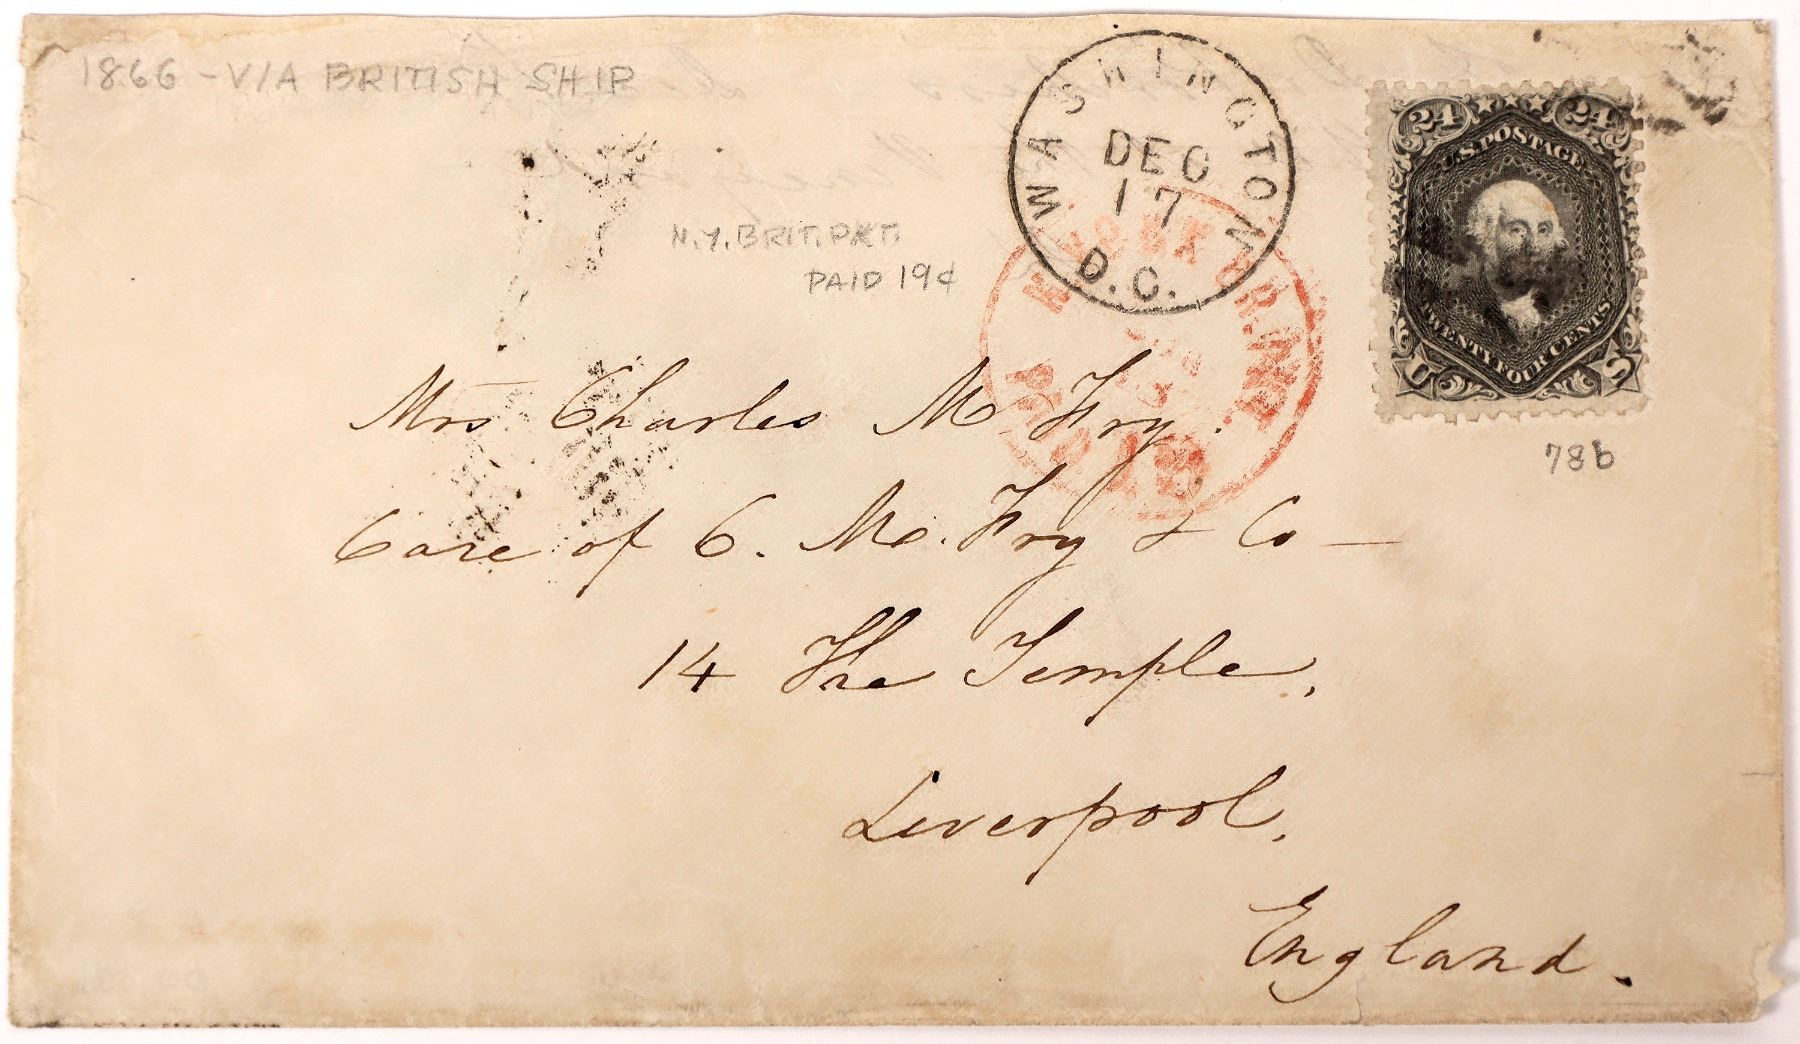 1866 - VIA BRITISH SHIP
WASHINGTON
DEC
17
D.C.
24 24
U.S. POSTAGE
TWENTY FOUR CENTS
U S
N.Y. BRIT. PKT.
PAID 19¢
N. YORK BR. PKT
PAID
78b
Mrs Charles M Fry.
Care of C. M. Fry & Co —
14 The Temple,
Liverpool,
England.